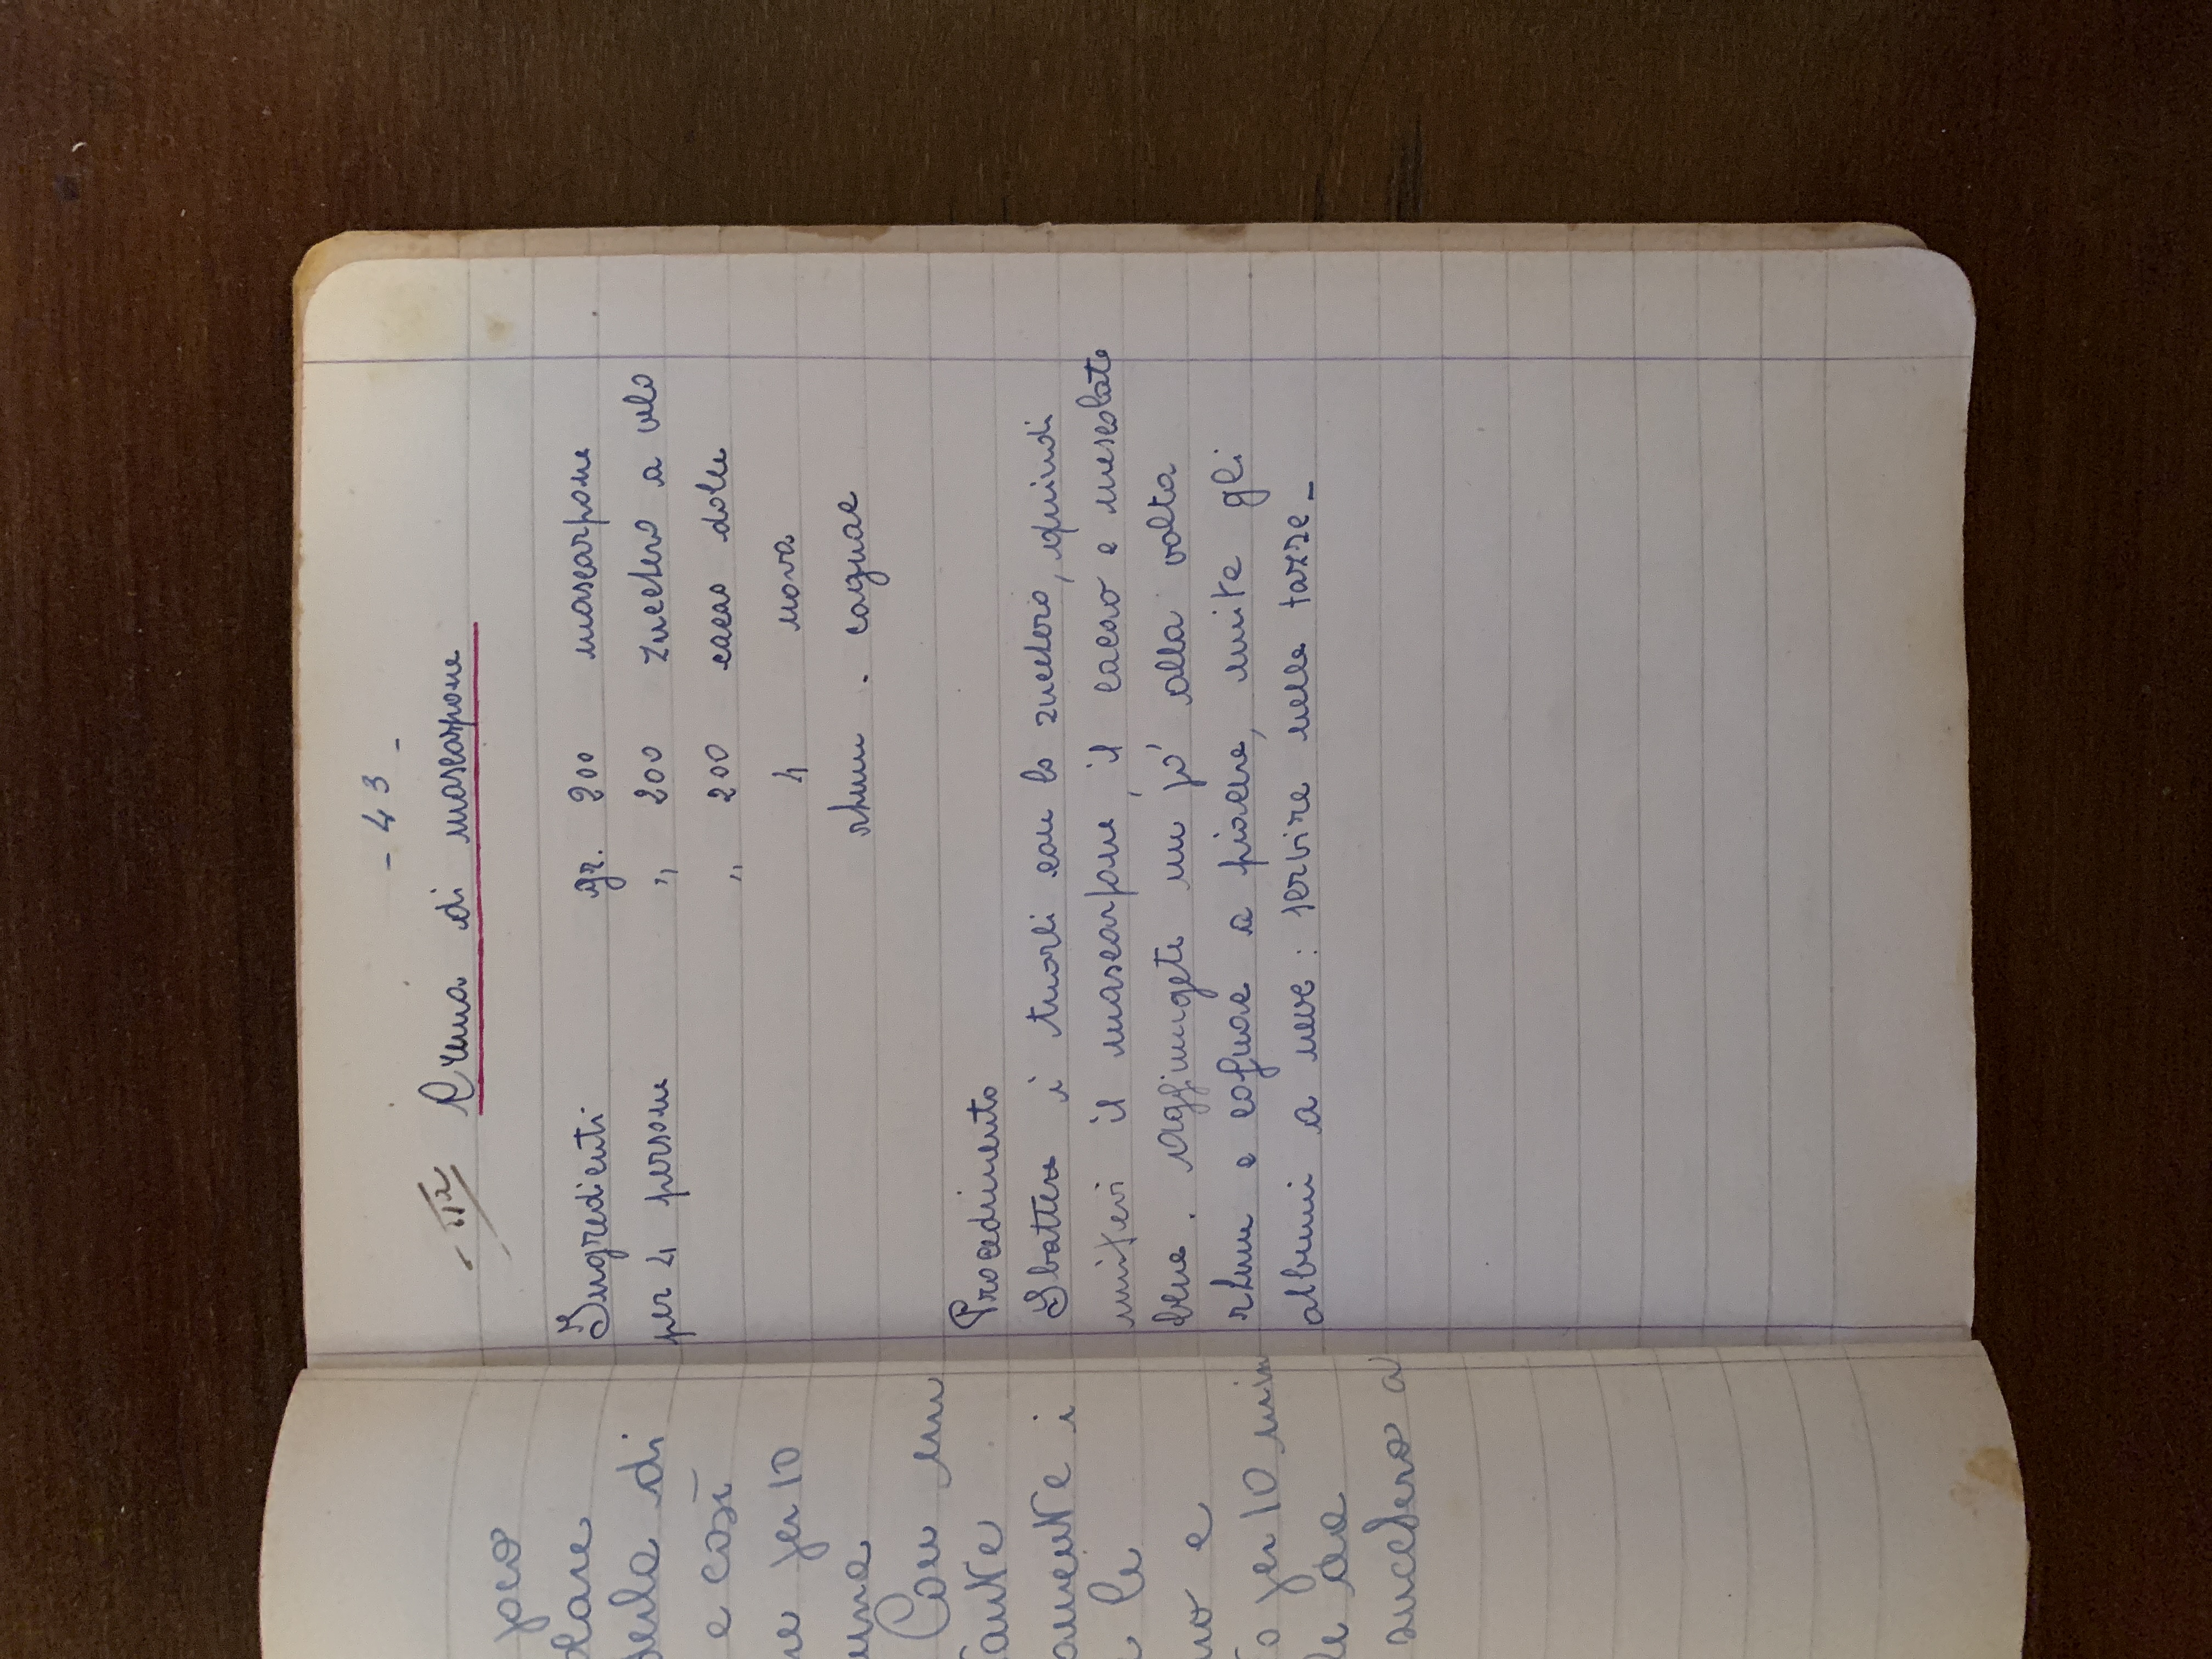 poco
derla di
e così
per 10
una
Con un
tante
amente i
le
no e
to per 10 min
le da
zucchero a
- 43 -
Crema di mascarpone
Ingredienti gr. 200 mascarpone
per 4 persone " 200 zucchero a velo
" 200 cacao dolce
4 uova
rhum . cognac
Procedimento
Sbattere i tuorli con lo zucchero, quindi
unitevi il mascarpone, il cacao e mescolate
bene. Aggiungete un pò alla volta
rhum e cognac a piacere, unite gli
albumi a neve : servire nelle tazze_